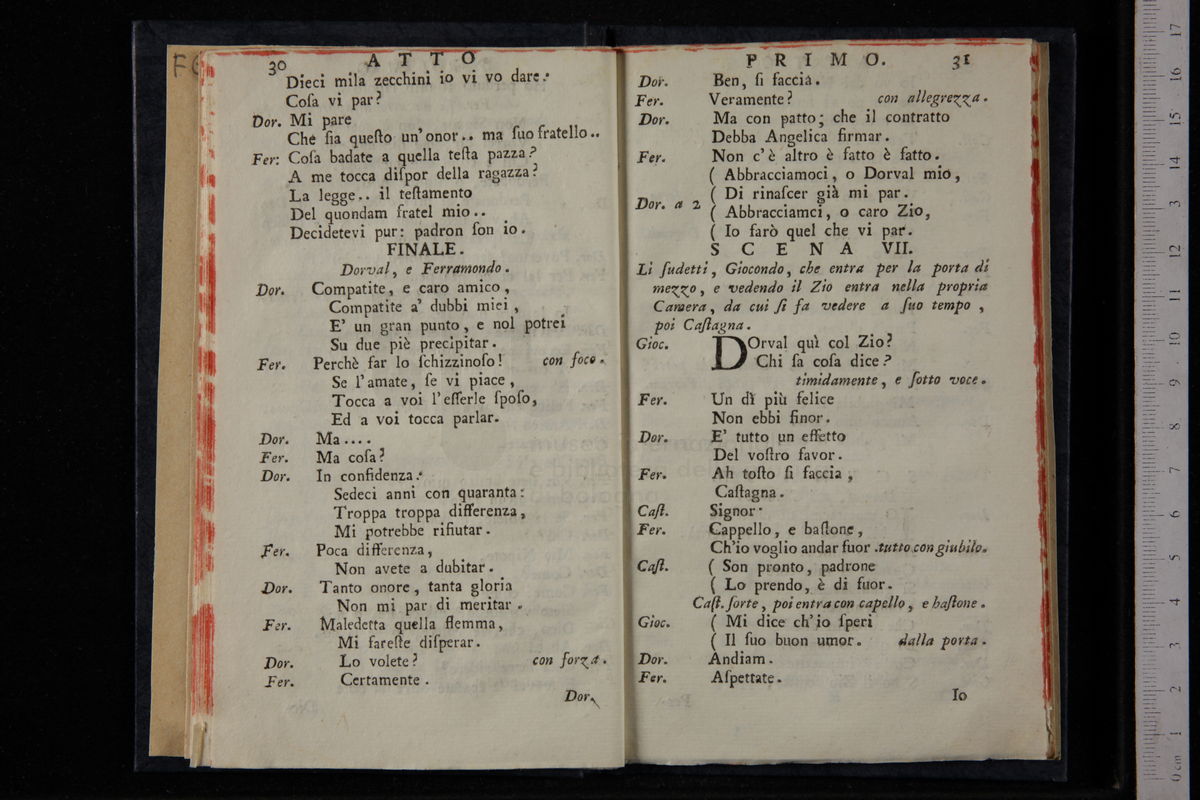 30 ATTO
Dieci mila zecchini io vi vo dare.
Coſa vi par?
Dor. Mi pare
Che ſia queſto un' onor.. ma ſuo fratello..
Fer: Coſa badate a quella teſta pazza?
A me tocca diſpor della ragazza?
La legge.. il teſtamento
Del quondam fratel mio..
Decidetevi pur: padron ſon io.
FINALE.
Dorval, e Ferramondo.
Dor. Compatite, e caro amico,
Compatite a' dubbi miei,
E' un gran punto, e nol potrei
Su due piè precipitar.
Fer. Perchè far lo ſchizzinoſo! con foco.
Se l'amate, ſe vi piace,
Tocca a voi l'eſſerle ſpoſo,
Ed a voi tocca parlar.
Dor. Ma....
Fer. Ma coſa?
Dor. In confidenza.
Sedeci anni con quaranta:
Troppa troppa differenza,
Mi potrebbe rifiutar.
Fer. Poca differenza,
Non avete a dubitar.
Dor. Tanto onore, tanta gloria
Non mi par di meritar.
Fer. Maledetta quella flemma,
Mi fareſte diſperar.
Dor. Lo volete? con forza.
Fer. Certamente.
Dor.
PRIMO. 31
Dor. Ben, ſi faccia.
Fer. Veramente? con allegrezza.
Dor. Ma con patto; che il contratto
Debba Angelica firmar.
Fer. Non c'è altro è fatto è fatto.
( Abbracciamoci, o Dorval mio,
( Di rinaſcer già mi par.
Dor. a 2 ( Abbracciamci, o caro Zio,
( Io farò quel che vi par.
SCENA VII.
Li ſudetti, Giocondo, che entra per la porta di
mezzo, e vedendo il Zio entra nella propria
Camera, da cui ſi fa vedere a ſuo tempo,
poi Caſtagna.
Gioc. DOrval quì col Zio?
Chi ſa coſa dice?
timidamente, e ſotto voce.
Fer. Un dì più felice
Non ebbi finor.
Dor. E' tutto un effetto
Del voſtro favor.
Fer. Ah toſto ſi faccia,
Caſtagna.
Caſt. Signor
Fer. Cappello, e baſtone,
Ch'io voglio andar fuor .tutto con giubilo.
Caſt. ( Son pronto, padrone
( Lo prendo, è di fuor.
Caſt. forte, poi entra con capello, e baſtone.
Gioc. ( Mi dice ch'io ſperi
( Il ſuo buon umor. dalla porta.
Dor. Andiam.
Fer. Aſpettate.
Io